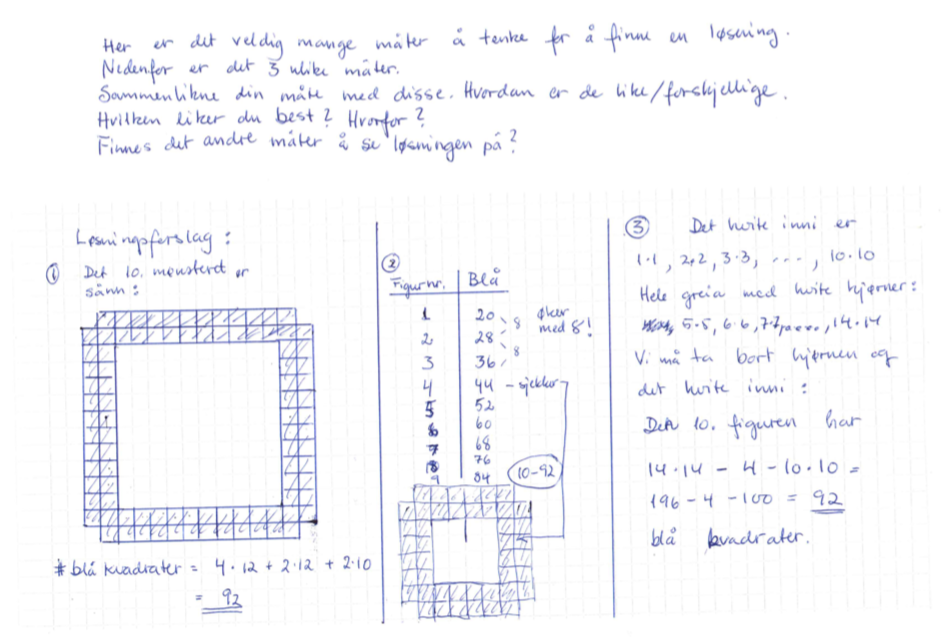 Her er det veldig mange måter å tenke for å finne en løsning.
Nedenfor er det 3 ulike måter.
Sammenlikne din måte med disse. Hvordan er de like/forskjellige.
Hvilken liker du best? Hvorfor?
Finnes det andre måter å se løsningen på?
Løsningsforslag:
① Det 10. mønsteret er
sånn:
# blå kvadrater = 4·12 + 2·12 + 2·10
= 92
②
Figurnr. Blå
1 20
8 øker
med 8!
2 28
8
3 36
4 44 - sjekker
5 52
6 60
7 68
8 76
9 84
10-92
③ Det hvite inni er
1·1, 2·2, 3·3, ..., 10·10
Hele greia med hvite hjørner:
5·5, 6·6, 7·7, ..., 14·14
Vi må ta bort hjørnen og
det hvite inni:
Den 10. figuren har
14·14 - 4 - 10·10 =
196 - 4 - 100 = 92
blå kvadrater.